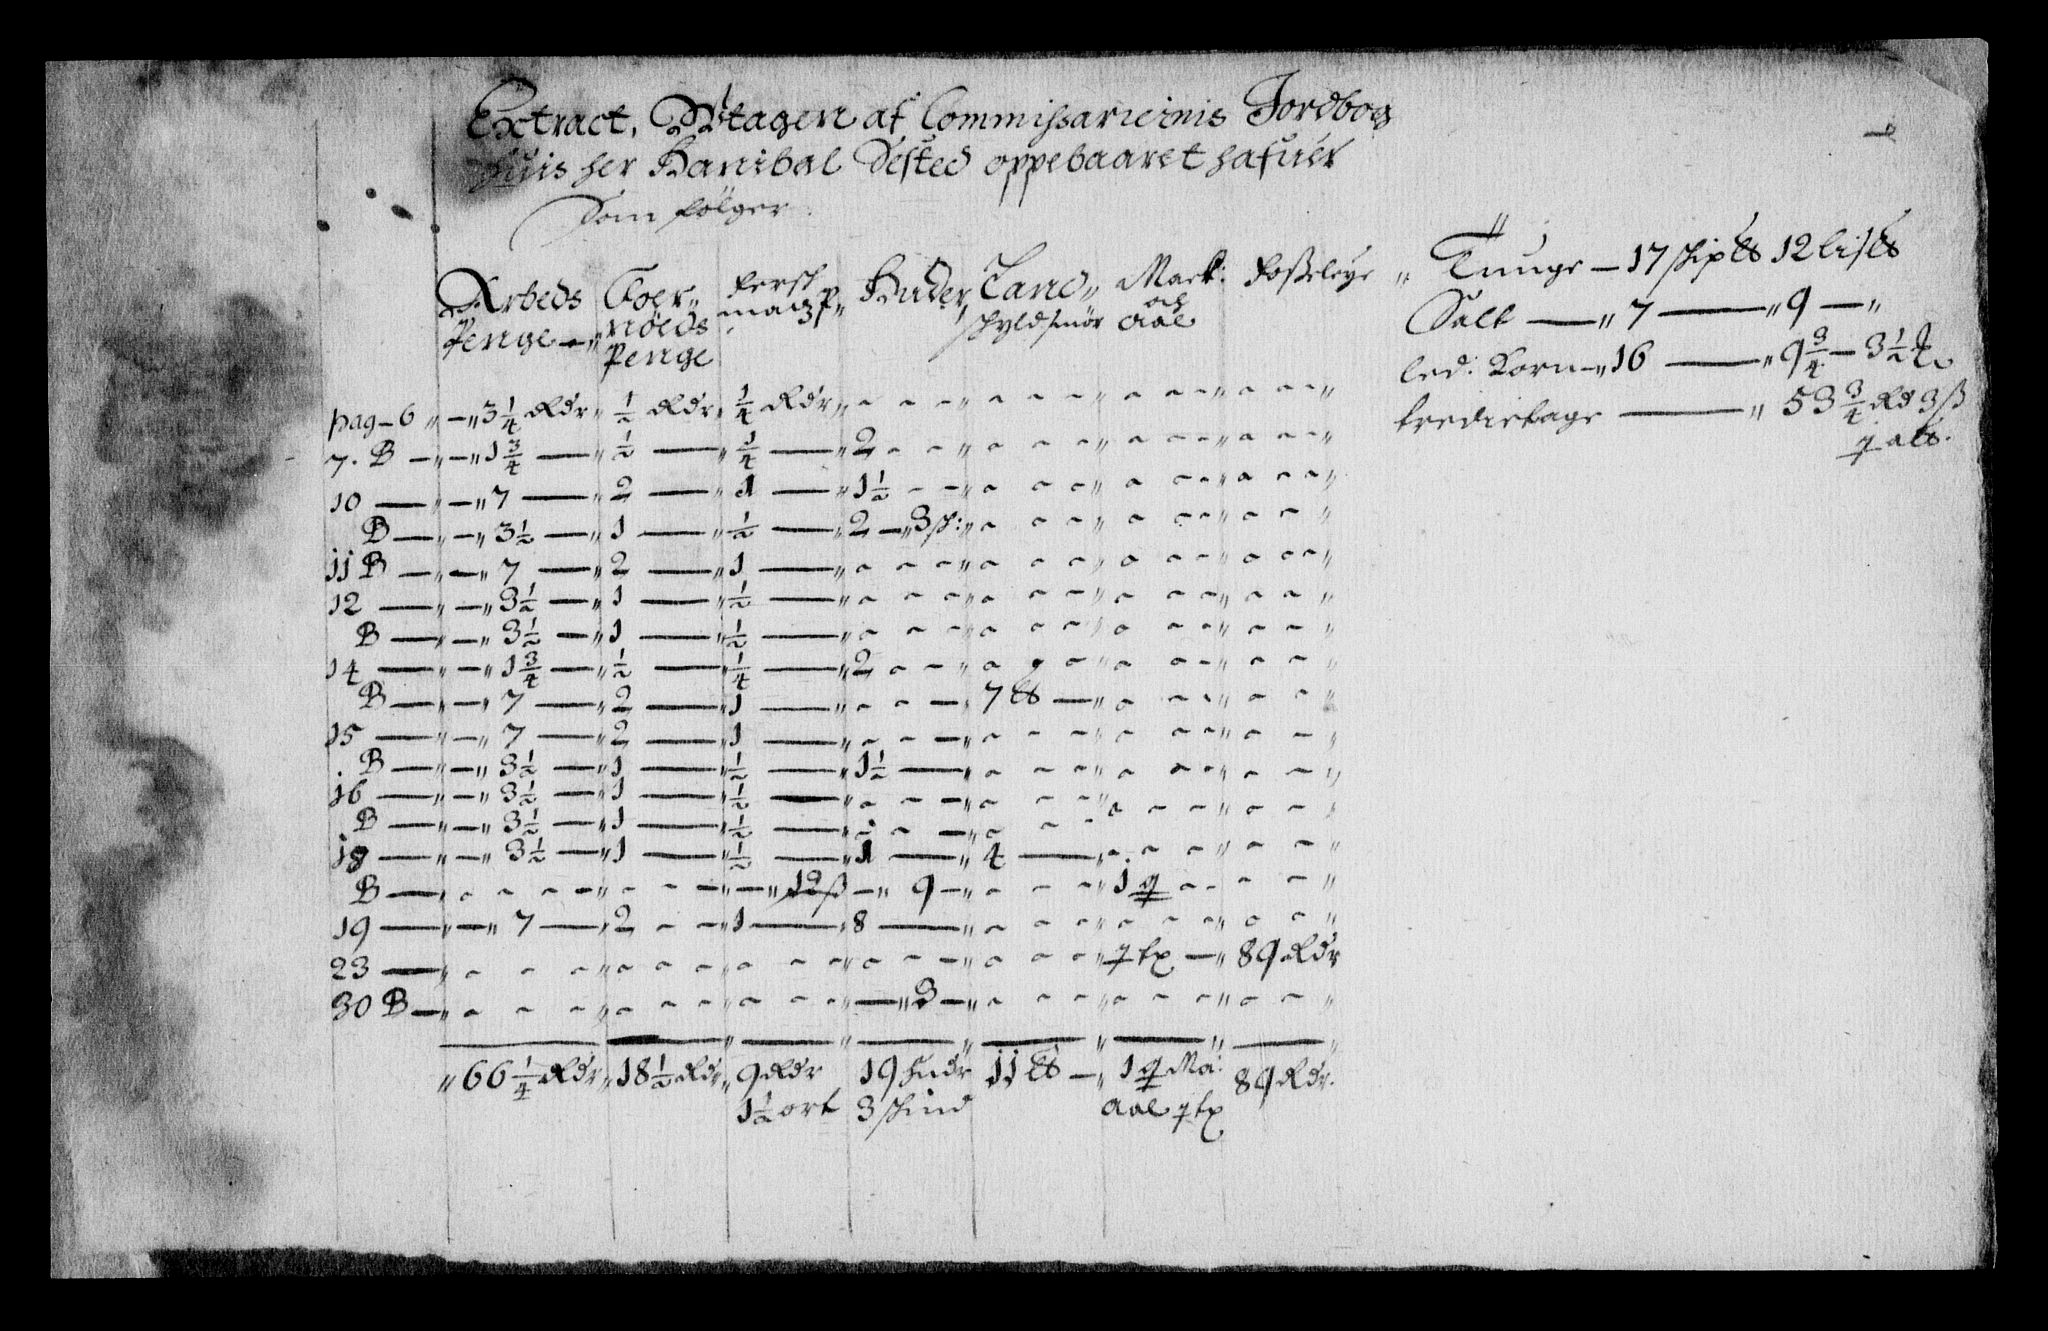 Extract, Wtagen af Commissariernis Jordbog
huis her Hanibal Sested oppebaaret hafuer
Som følger
Arbeds Penge Foernøds Penge fersk madz P Huder Land skyld smør Mack: och aal Fosseleye
pag-6 3 1/4 Rdr 1/2 Rdr 1/4 Rdr
7. B 1 3/4 1/2 1/4 2
10 7 2 1 1 1/2
B 3 1/2 1 1/2 2 3 sk:
11 B 7 2 1
12 3 1/2 1 1/2
B 3 1/2 1 1/2
14 1 3/4 1/2 1/4 2
B 7 2 1 7 ℔
15 7 2 1
B 3 1/2 1 1/2 1 1/2
16 3 1/2 1 1/2
B 3 1/2 1 1/2
18 3 1/2 1 1/2 1 4
B 12 ß 9 1 q
19 7 2 1 8
23 89 Rdr
30 B 3
66 1/4 Rdr 18 1/2 Rdr 9 Rdr 19 hudr 11 ℔ 1 q Ma: 89 Rdr.
1 1/2 ort 3 skind aal
Tunge 17 skip ℔ 12 lis ℔
Salt 7 9
led: Korn 16 9 3/4 3 1/2
tredietage 53 3/4 Rd 3 ß
alb.